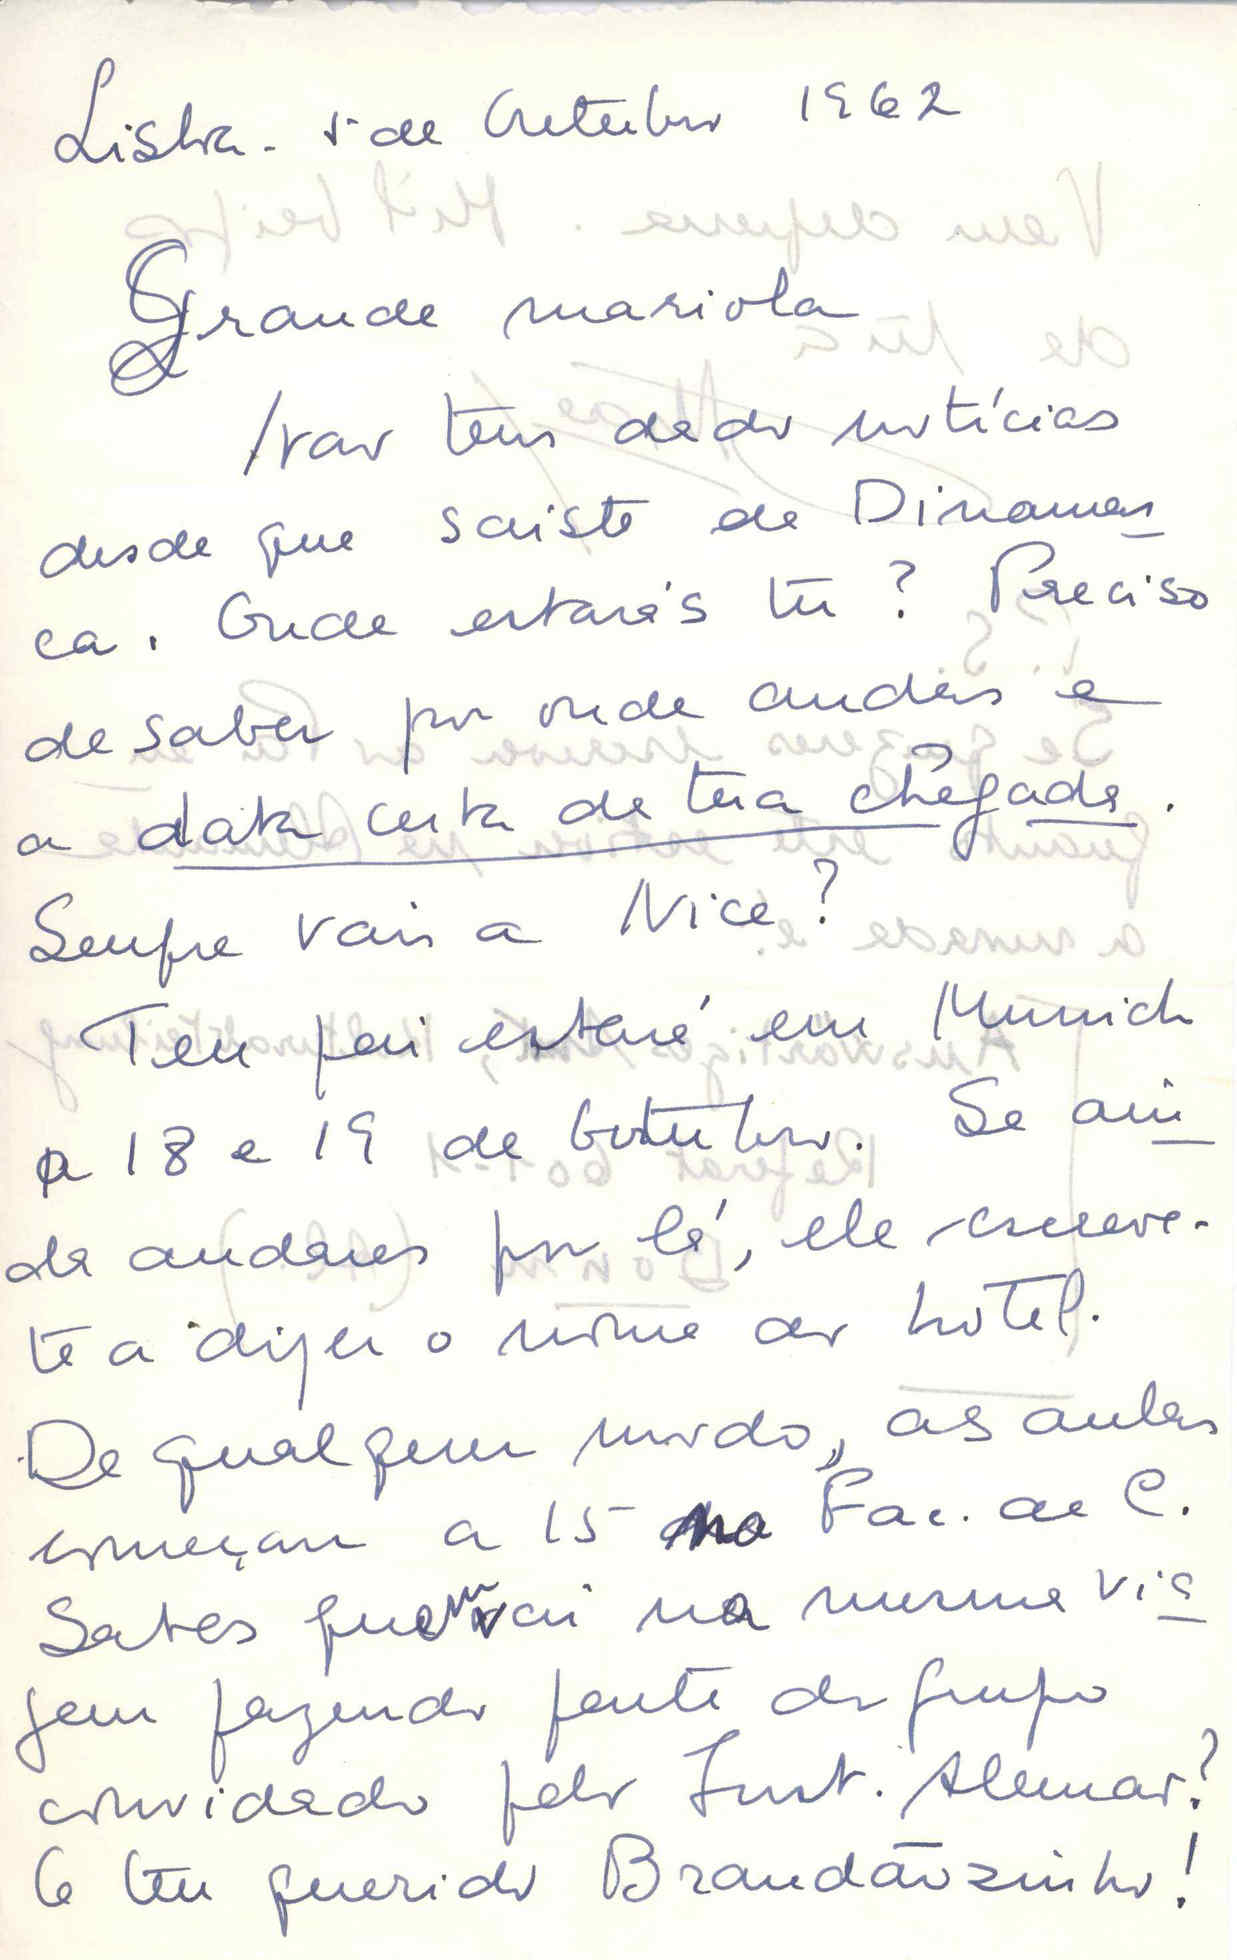 Lisboa - 5 de Outubro 1962
Grande mariola
Não tens dado notícias
desde que saiste da Dinamar
ca. Onde estarás tu? Preciso
de saber por onde andas e
a data certa da tua chegada.
Sempre vais a Nice?
Teu pai estará em Munich
a 18 e 19 de Outubro. Se ain
da andares por lá, ele escreve-
te a dizer o nome do hotel.
De qualquer modo, as aulas
começam a 15 na Fac. de C.
Sabes quem vai na mesma via
gem fazendo parte do grupo
convidado pelo Inst. Alemão?
O teu querido Brandãozinho!